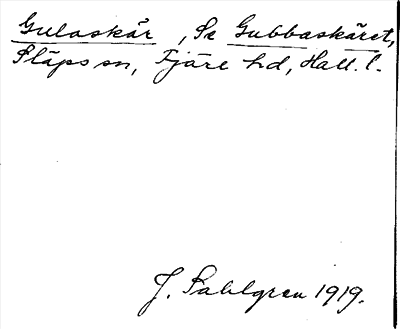 Gulaskär, Se Gubbaskäret,
Släps sn, Fjäre hd, Hall. l.
J. Sahlgren 1919.